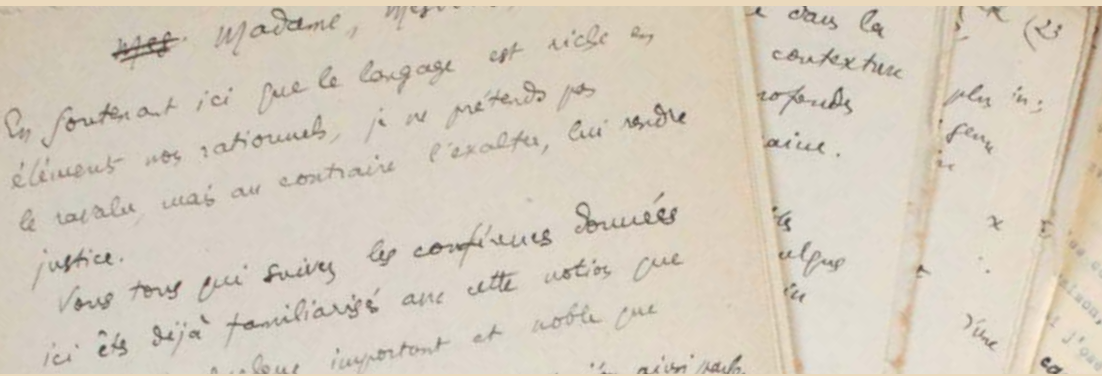 Mes Madame, Mes
En soutenant ici que le langage est riche en
éléments non rationnels, je ne prétends pas
le ravaler, mais au contraire l'exalter, lui rendre
justice.
Vous tous qui suivez les conférences données
ici êtes déjà familiarisés avec cette notion que
important et noble que
ainsi parl
dans la
contexture
profondes
aine.
plus in:
genre
(23
quelque
x
d'une